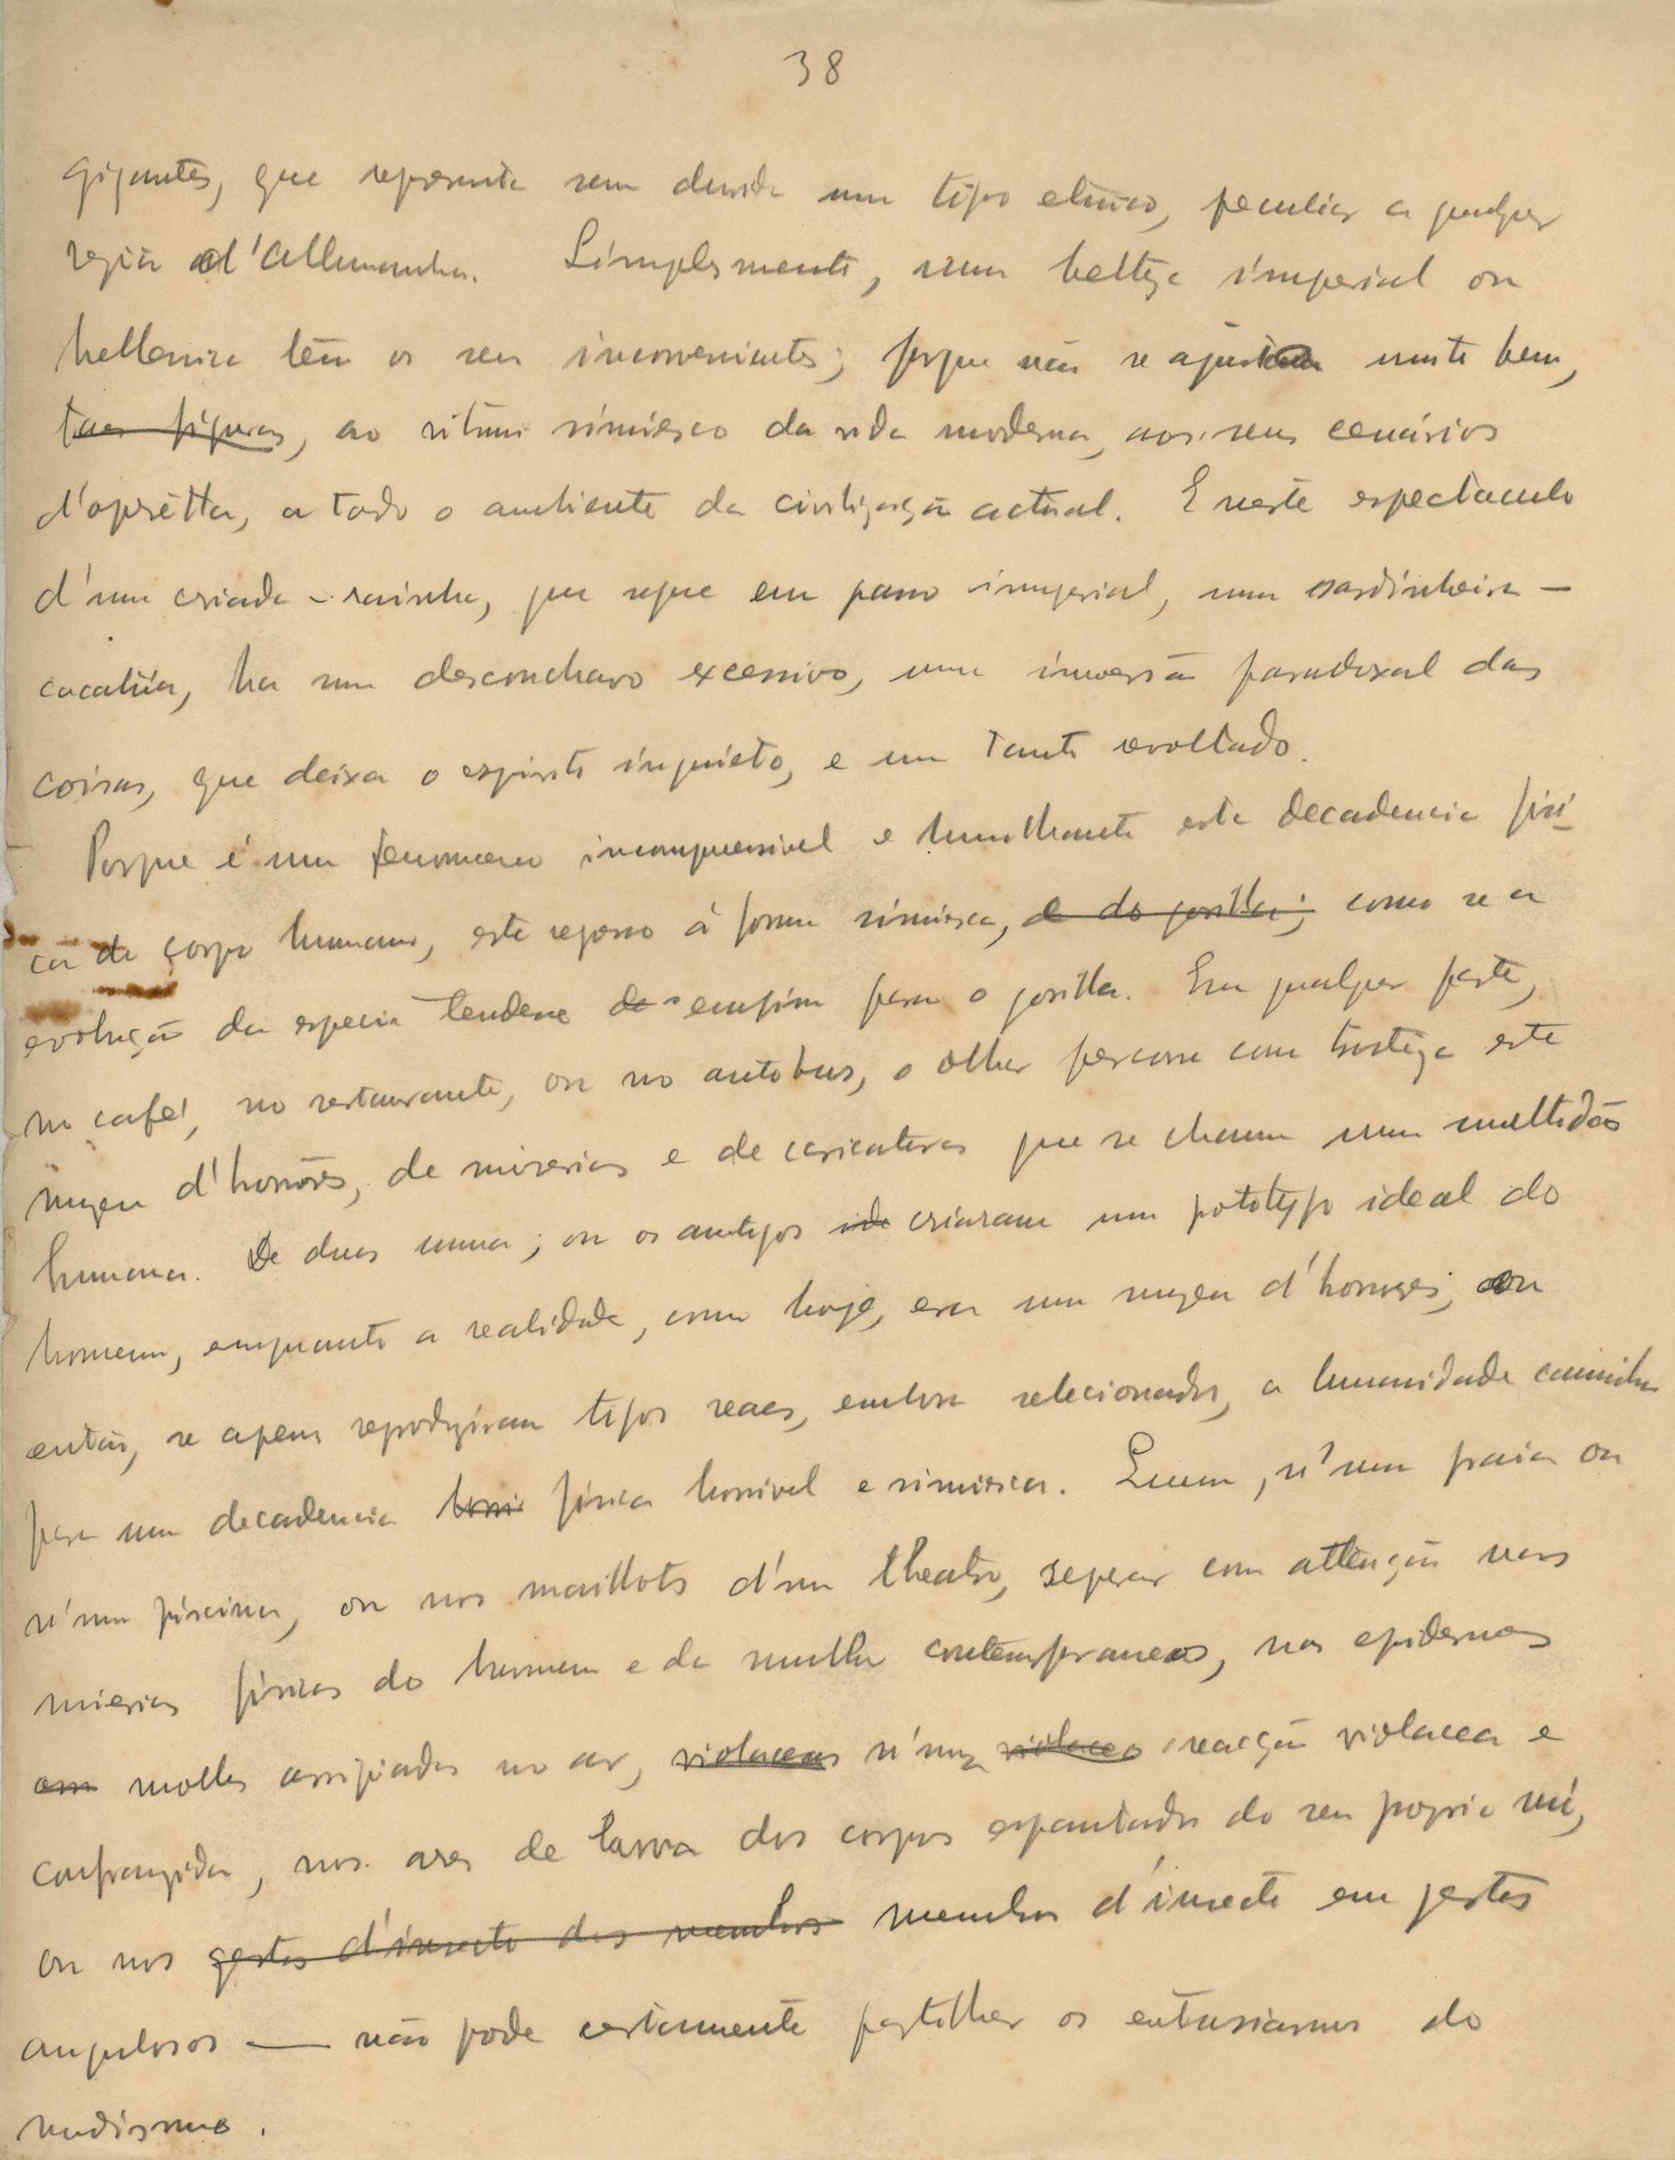 38
gigantes, que representa sem duvida um tipo etnico, peculiar a qualquer
região d'Allemanha. Simplesmente, uma belleza imperial ou
hellenica tem os seus inconvenientes; porque não se ajusta muito bem,
taes figuras, ao ritmo simiesco da vida moderna, aos seus cenários
d'operetta, a todo o ambiente da civilização actual. E neste espectaculo
d'uma criada-rainha, que segue em passo imperial, uma sardinheira-
cacatúa, ha um desconchavo excessivo, uma inversão paradoxal das
coisas, que deixa o espirito inquieto, e um tanto revoltado.
Porque é um fenomeno incompreensivel e humilhante esta decadencia físi-
ca do corpo humano, este regresso á forma simiesca, e do gorilla; como se a
evolução da especie tendesse de emfim para o gorilla. Em qualquer parte,
no café, no restaurante, ou no autobus, o olhar percorre com tristeza este
museu d'horrôres, de miserias e de caricaturas que se chama uma multidão
humana. De duas uma; ou os antigos ide criaram um prototypo ideal do
homem, emquanto a realidade, como hoje, era um museu d'horrores; ou
então, se apenas reproduziram tipos reaes, embora selecionados, a humanidade caminha
para uma decadencia horri física horrivel e simiesca. Quem, n'uma praia ou
n'uma piscina, ou nos maillots d'um theatro, reparar com attenção nas
miserias físicas do homem e da mulher contemporaneos, nas epidermes
em molles arripiadas no ar, violaceas n'uma violaceo reacção violacea e
confrangida, nos ares de larva dos corpos espantados do seu proprio nú,
ou nos gestos d'insecto dos membros membros d'insecto em gestos
angulosos — não pode certamente partilhar os entusiasmos do
nudismo.